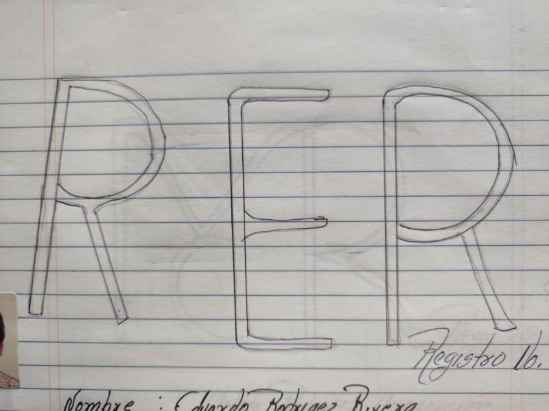 RER
Registro 16.
Nombre : Eduardo Rodriguez Rivera